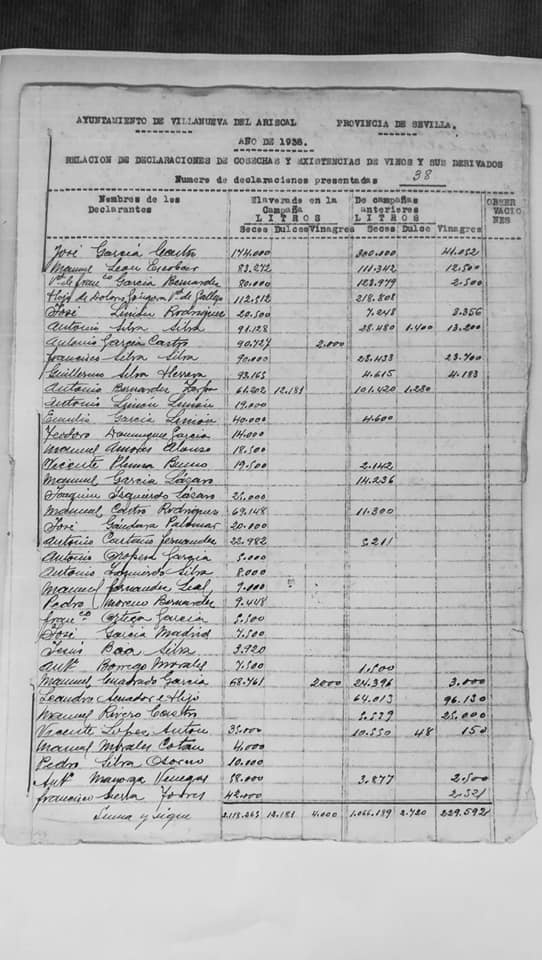 AYUNTAMIENTO DE VILLANUEVA DEL ARISCAL PROVINCIA DE SEVILLA.
AÑO DE 1936.
RELACION DE DECLARACIONES DE COSECHAS Y EXISTENCIAS DE VINOS Y SUS DERIVADOS
Numero de declaraciones presentadas 38
Nombres de los Elaverado en la De campañas OBSER
Declarantes Campaña anteriores VACIO
LITROS LITROS NES
Secos Dulces Vinagres Secos Dulce Vinagres
José García Castro 174.000 300.000 41.052
Manuel Leon Escobar 83.272 111.342 12.500
Vda de Franco García Bernardez 80.000 123.979 2.500
Hijo de Dolores Vda de Gallego 112.512 218.808
José Limon Rodriguez 20.500 7.248 8.356
Antonio Silva Silva 91.128 28.480 1.400 13.200
Antonio García Castro 90.727 2.000
Francisco Silva Silva 90.000 23.433 23.700
Guillermo Silva Herrera 93.165 4.615 4.183
Antonio Bernardez 61.202 12.181 101.420 1.280
Antonio Limón Limón 19.000
Emilio García Limón 40.000 4.600
Teodoro Dominguez García 14.000
Manuel Amores Alonso 18.500
Vicente Bueno 19.500 2.142
Manuel García Lázaro 14.236
Joaquin Izquierdo Lázaro 25.000
Manuel Castro Rodriguez 69.148 11.300
José Gándara Palomar 20.000
Antonio Castaño Fernandez 22.982 5.211
Antonio Oropesa García 5.000
Antonio Izquierdo Silva 8.000
Manuel Fernandez Leal 9.000
Pedro Moreno Bernardez 9.448
Franco Ortega García 5.500
José García Madrid 7.500
Jesús Baa Silva 3.920
Antº Borrego Morales 7.500 1.500
Manuel Cuadrado García 68.761 2000 24.396 3.000
Leandro Senador e Hijo 64.013 96.130
Manuel Rivero Castro 5.539 25.000
Vicente Lopez Anton 35.000 10.550 48 150
Manuel Morales Cotan 4.000
Pedro Silva Osorno 10.000
Antº Mayoga Venegas 58.000 3.877 2.500
Francisco Serra Torres 42.000 2.321
Suma y sigue 2.118.265 12.181 4.000 1.066.189 2.720 229.592